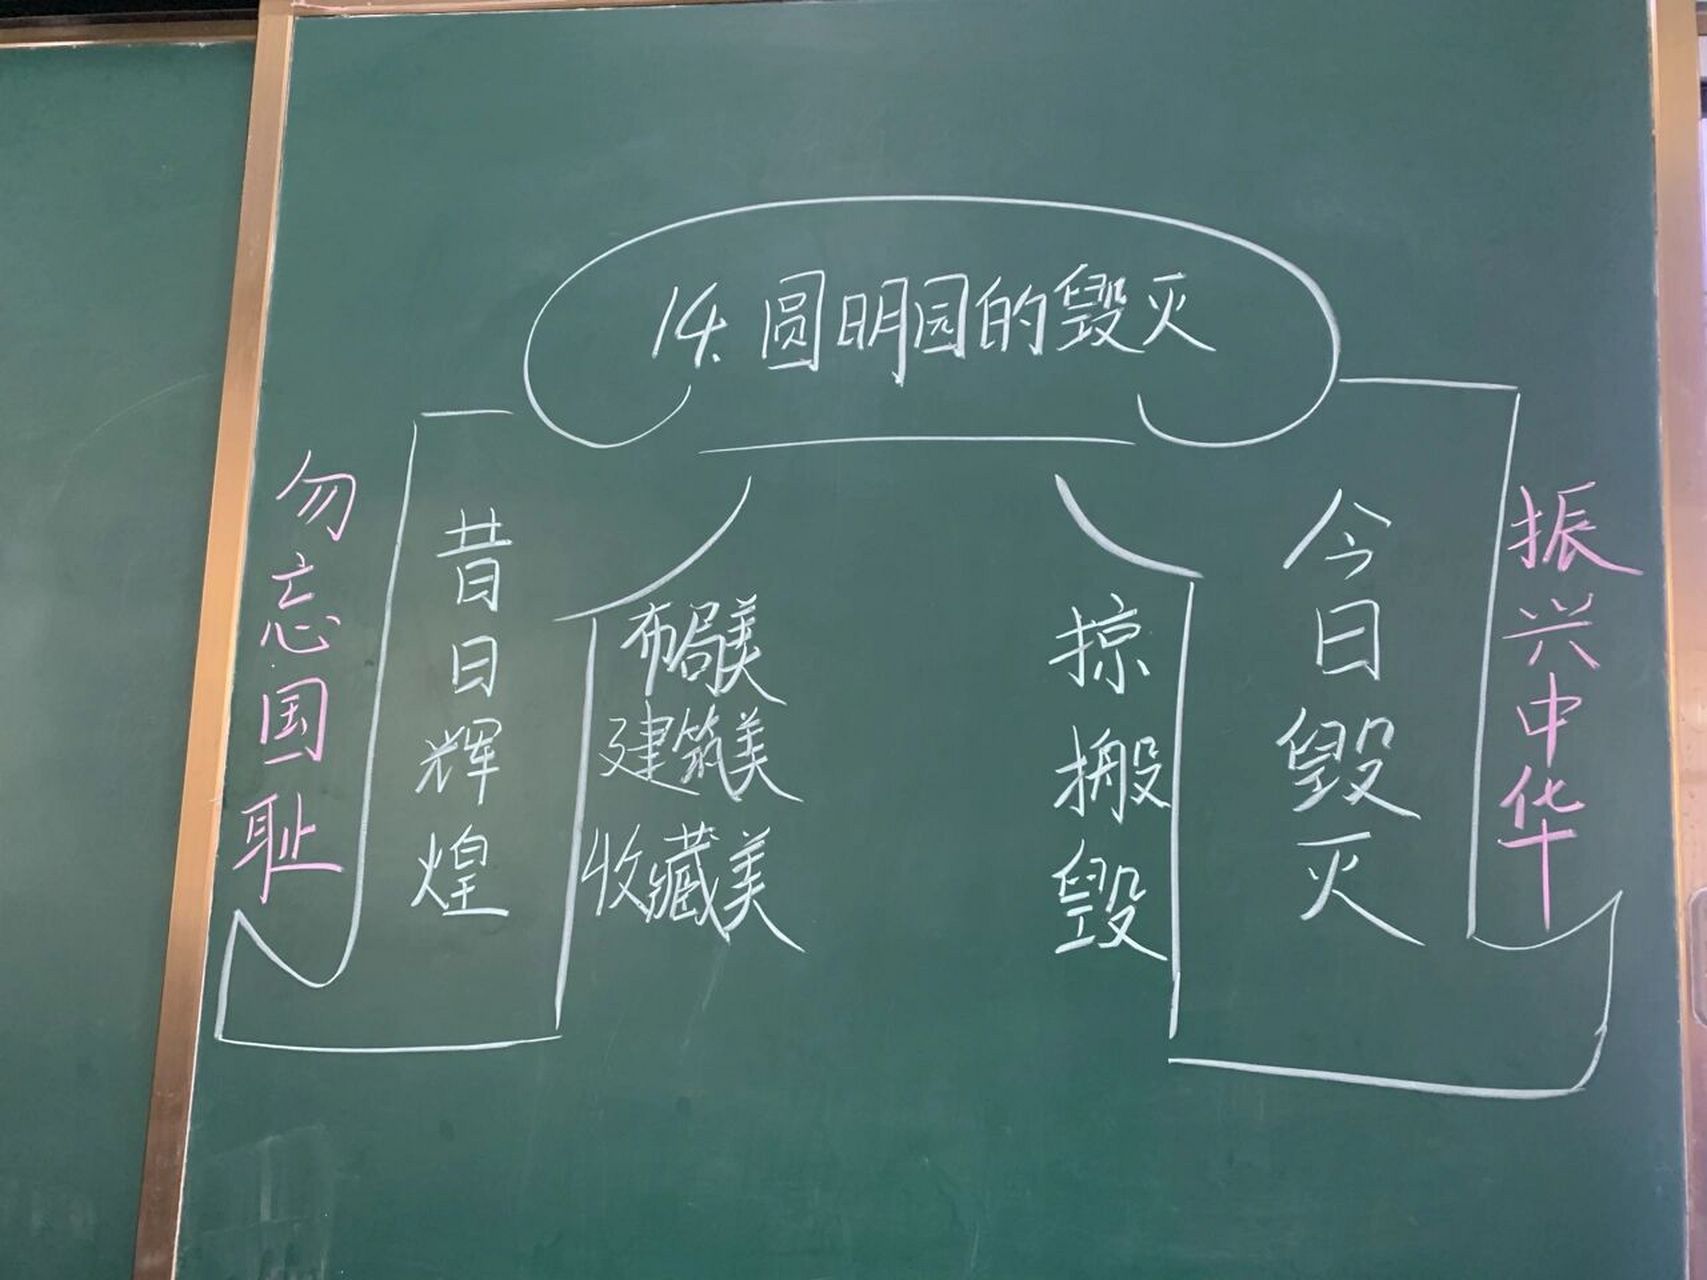 14.圆明园的毁灭
勿忘国耻
昔日辉煌
布局美
建筑美
收藏美
掠
搬
毁
今日毁灭
振兴中华